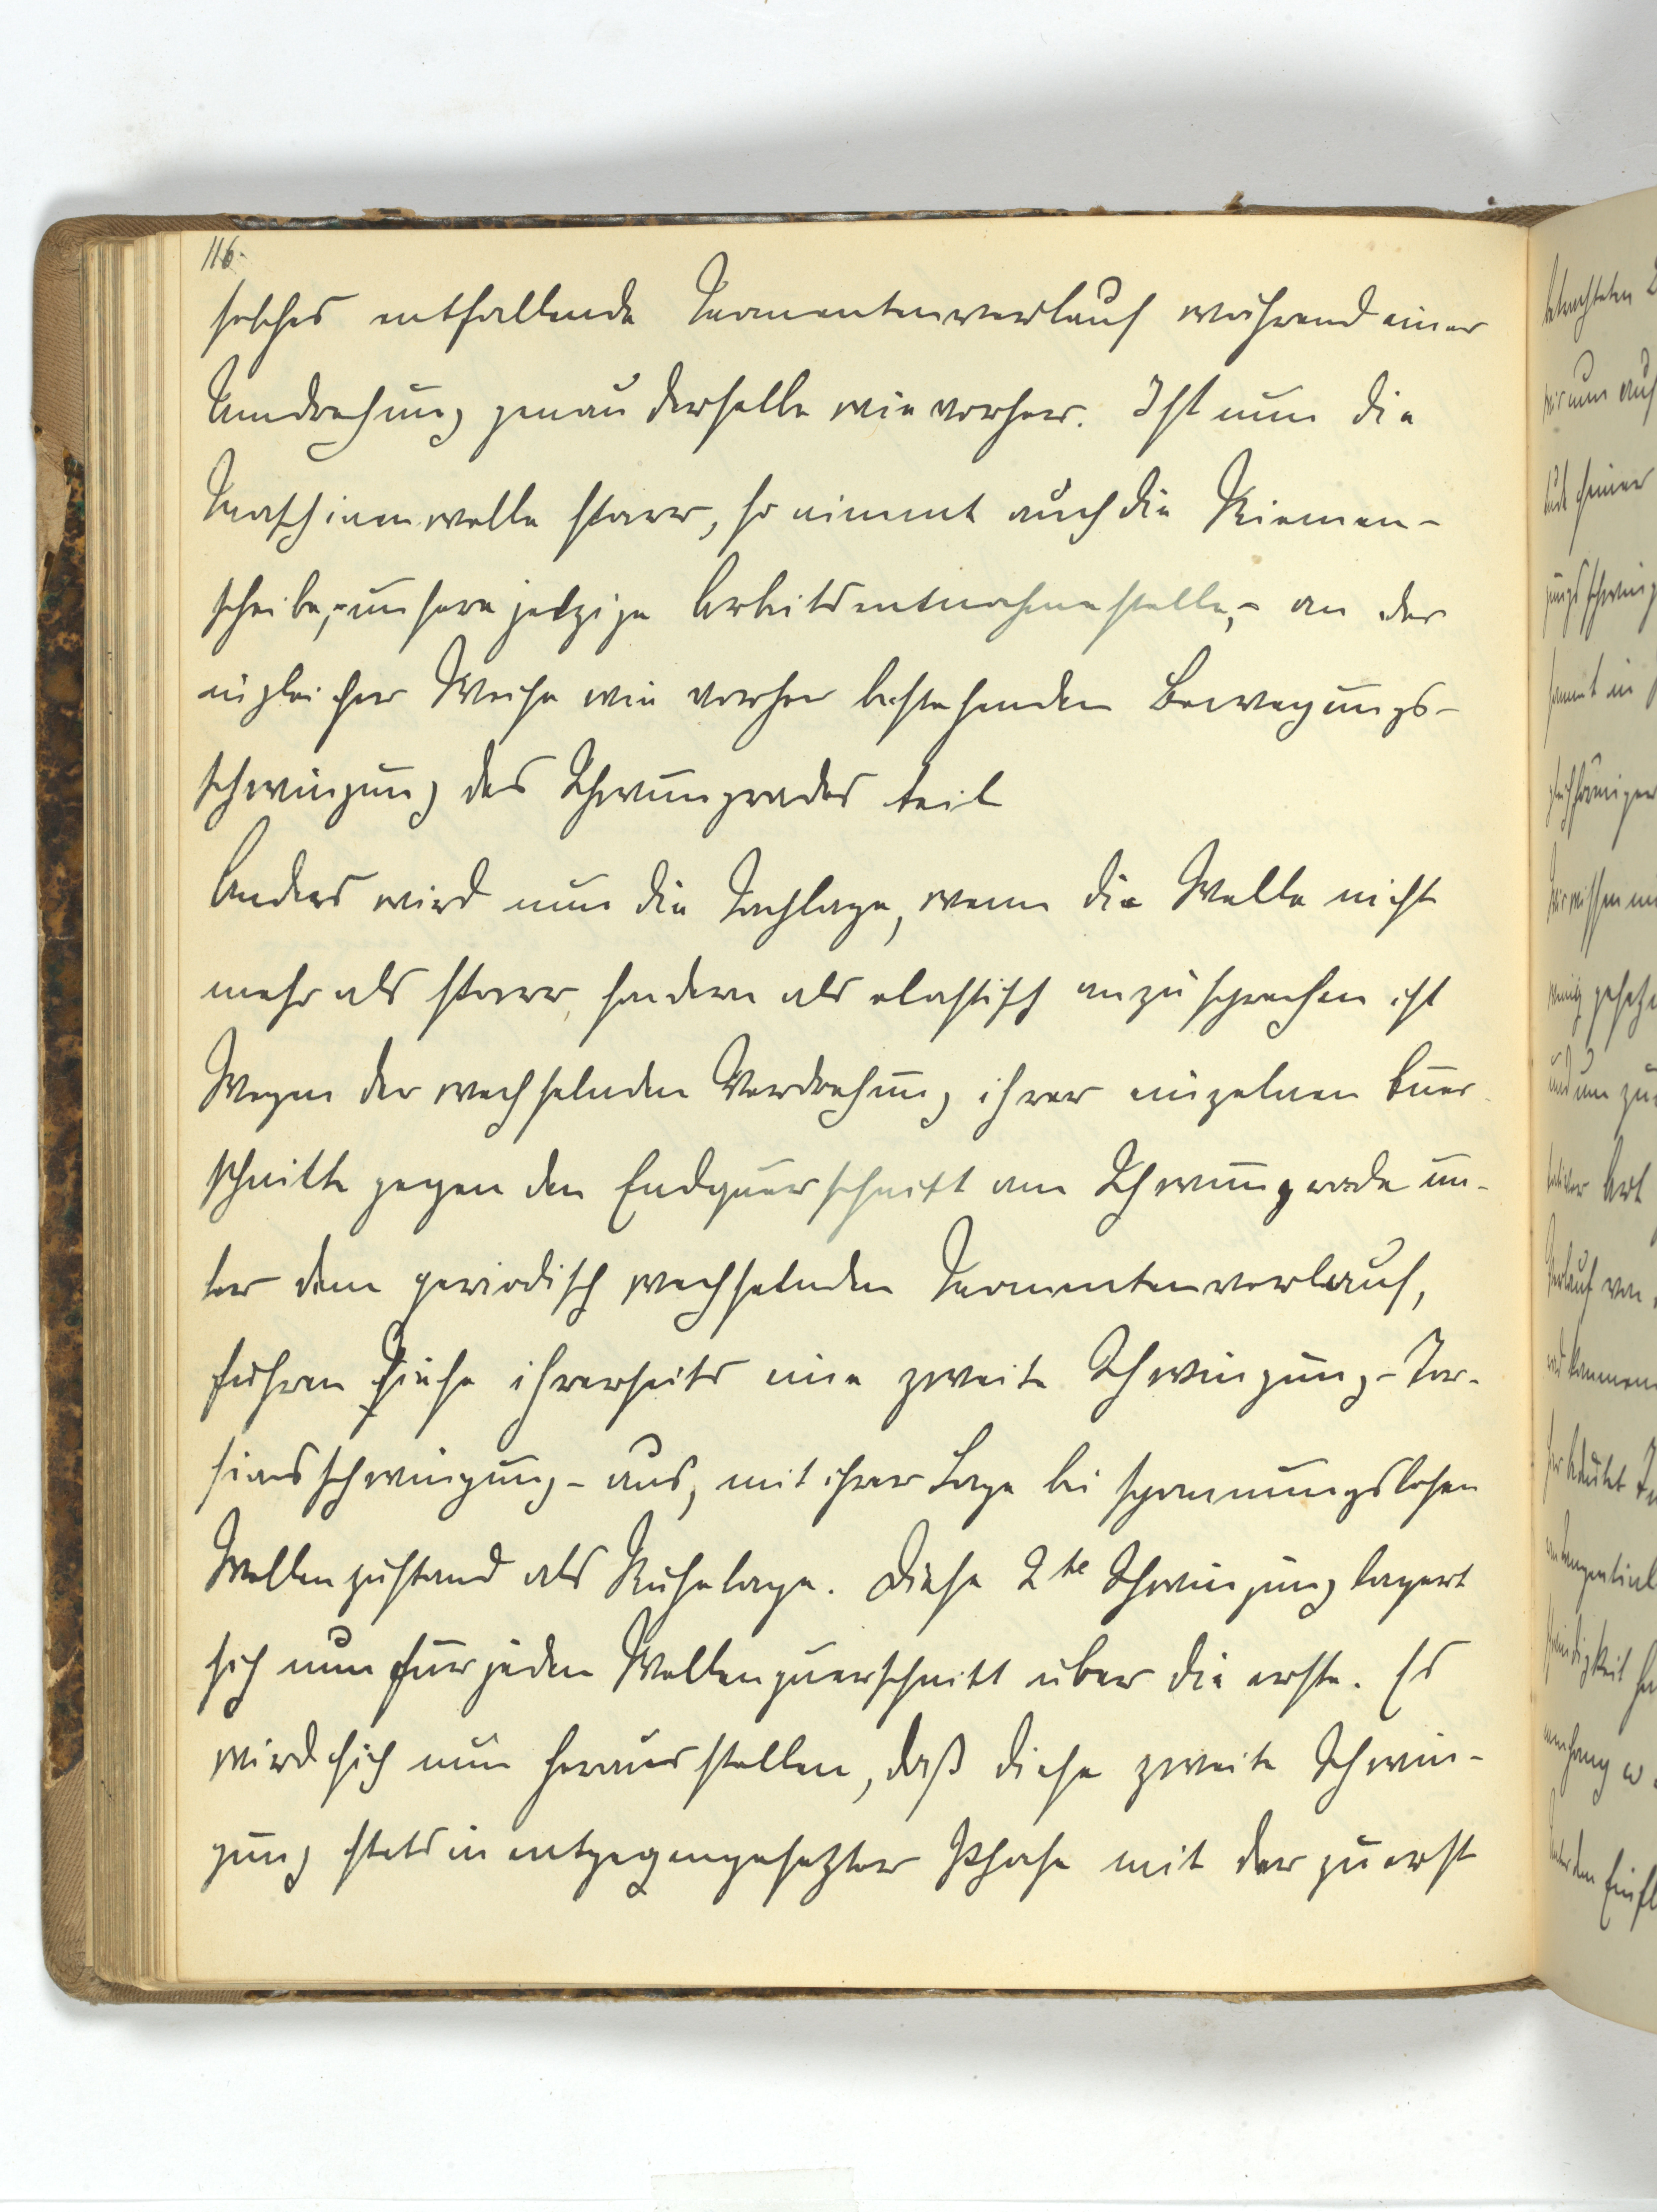 116.
solches entfallende Momentenverlauf während einer
Umdrehung genau derselbe wie vorher. Ist nun die
Maschinenwelle starr, so nimmt auch die Riemen-
scheibe,- unsere jetzige Arbeitsentnahmestelle,- an der
in gleicher Weise wie vorher bestehenden Bewegungs-
schwingung des Schwungrades teil
Anders wird nun die Sachlage, wenn die Welle nicht
mehr als starr, sondern als elastisch anzusprechen ist
Wegen der wechselnden Verdrehung ihrer einzelnen Quer
schnitte gegen den Endquerschnitt am Schwungrade un-
ter dem periodisch wechselnden Momentenverlauf,
führen diese ihrerseits eine zweite Schwingung - Tor-
sionsschwingung - aus, mit ihrer Lage bei spannungslosen
Wellenzustand als Ruhelage. Diese 2te Schwingung lagert
sich nun für jeden Wellenquerschnitt über die erste. Es
wird sich nun herausstellen, daß diese zweite Schwin-
gung stets in entgegengesetzter Phase mit der zuerst